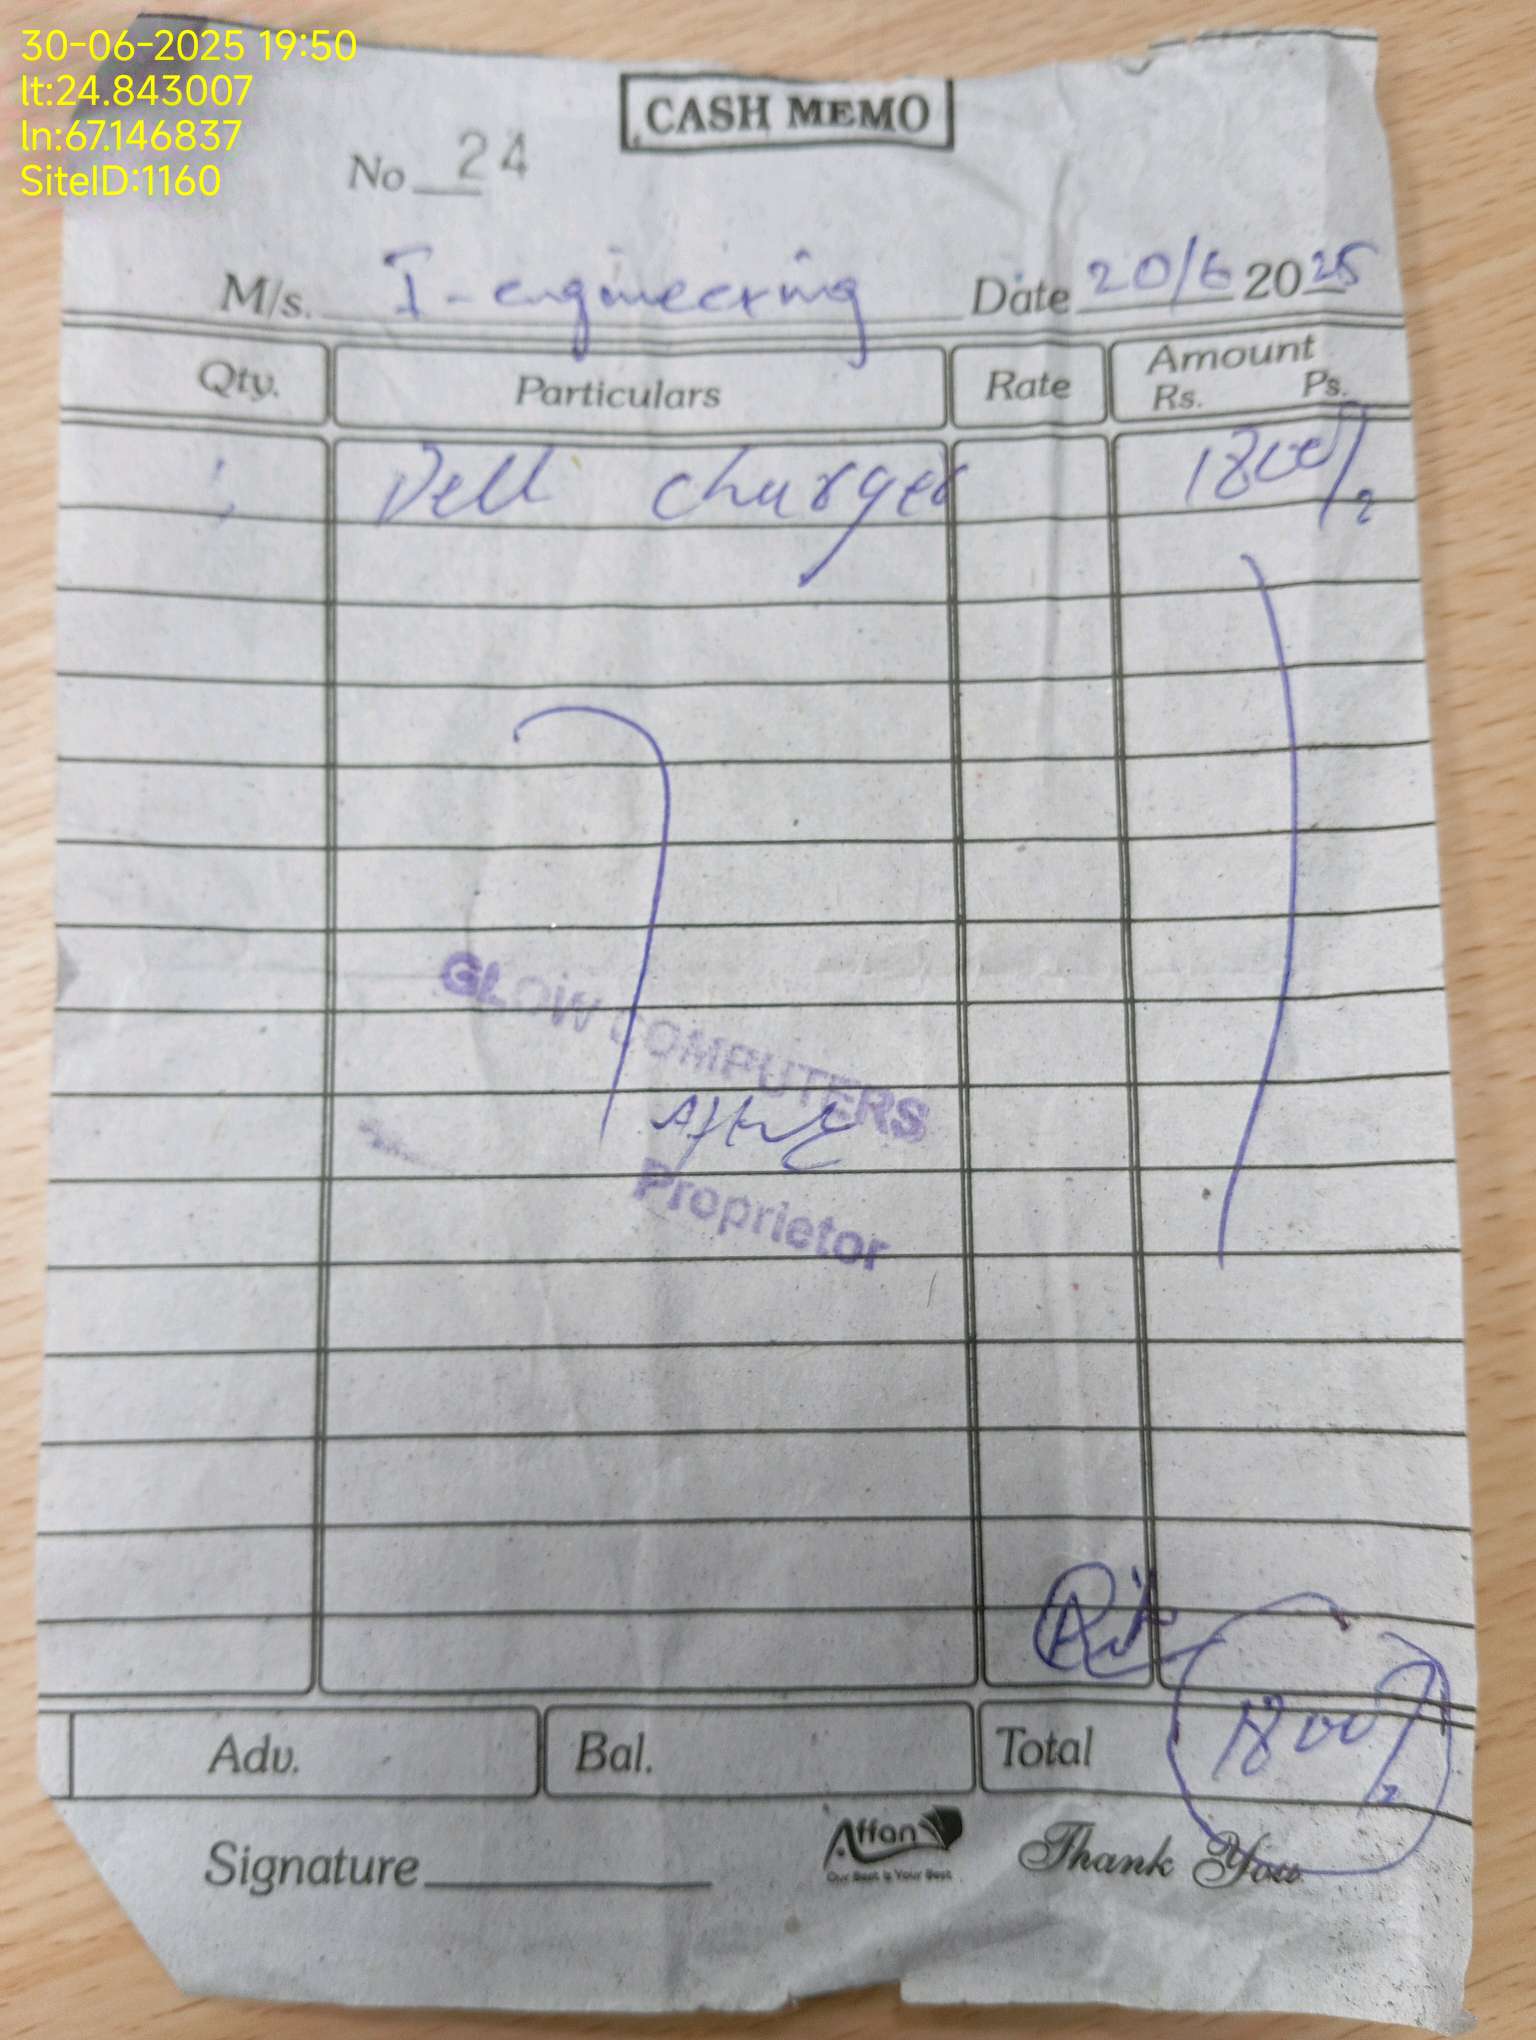 30-06-2025 19:50
lt:24.843007
ln:67.146837
SiteID:1160
CASH MEMO
No 24
M/s. I-engineering Date 20/6 2025
Qty. Particulars Rate Amount Rs. Ps.
Dell charger 1800/
GLOW COMPUTERS
Proprietor
Adv. Bal. Total 1800/
Signature
Affan
Our Best is Your Best
Thank You